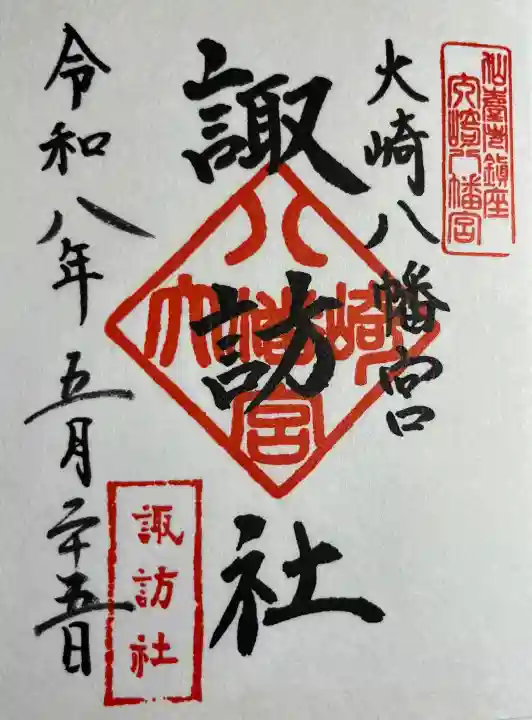 仙臺市鎮座
大崎八幡宮
大崎八幡宮
諏訪社
大崎八幡宮
諏訪社
令和八年五月二十五日